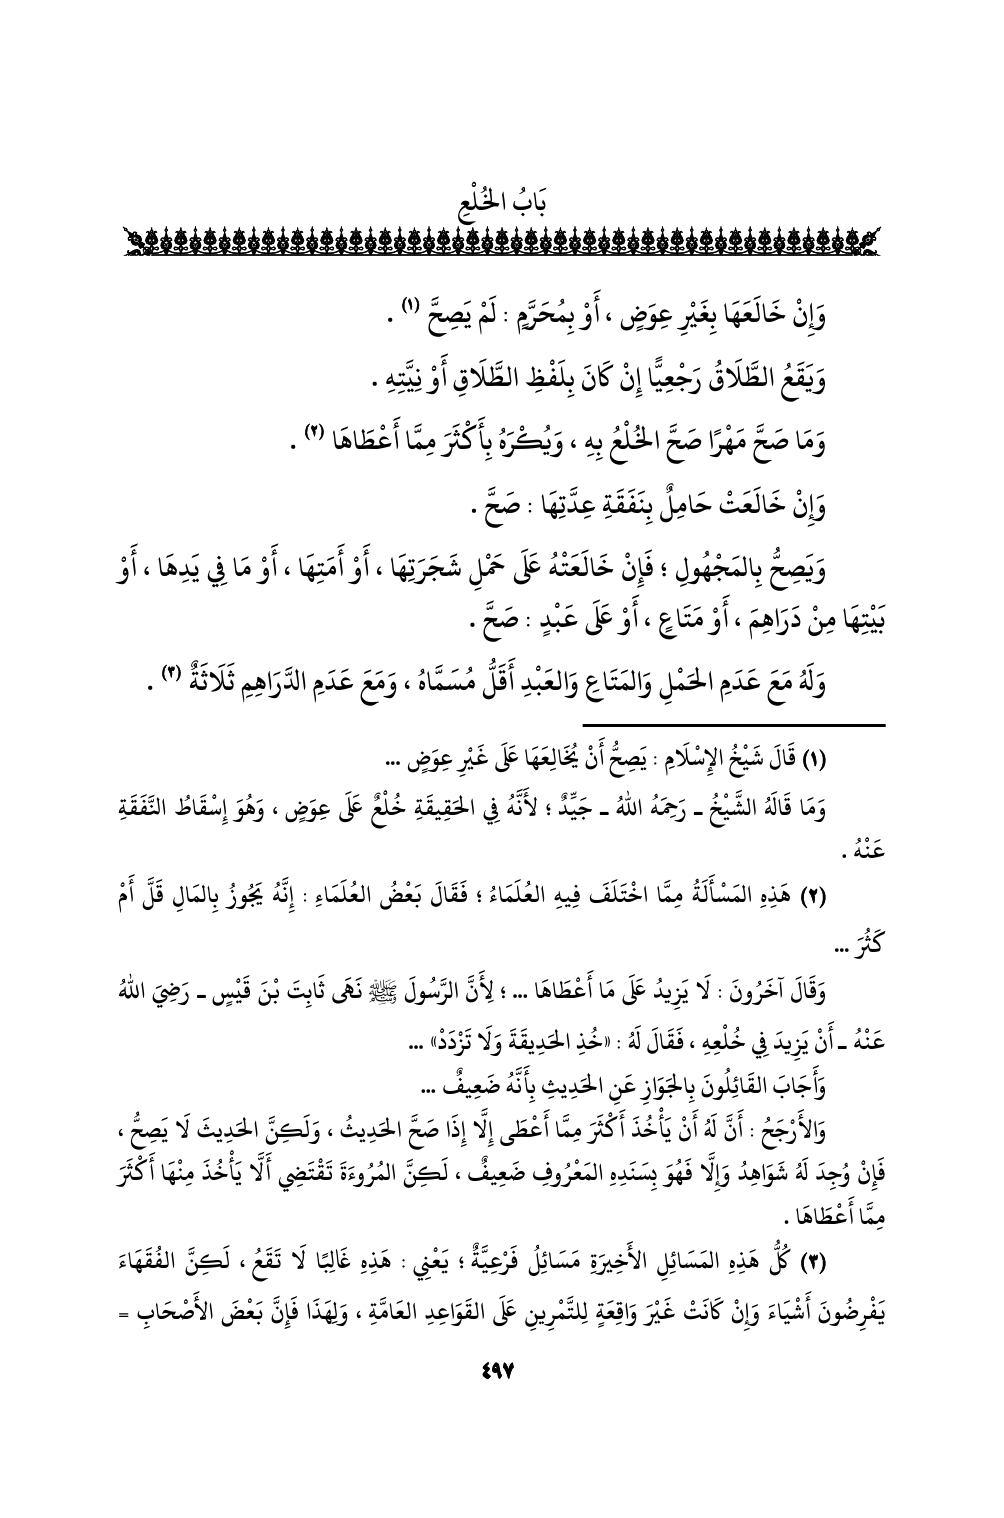 بَابُ الخُلْعِ
وَإِنْ خَالَعَهَا بِغَيْرِ عِوَضٍ ، أَوْ بِمُحَرَّمٍ : لَمْ يَصِحَّ (١) .
وَيَقَعُ الطَّلَاقُ رَجْعِيًّا إِنْ كَانَ بِلَفْظِ الطَّلَاقِ أَوْ نِيَّتِهِ .
وَمَا صَحَّ مَهْرًا صَحَّ الخُلْعُ بِهِ ، وَيُكْرَهُ بِأَكْثَرَ مِمَّا أَعْطَاهَا (٢) .
وَإِنْ خَالَعَتْ حَامِلٌ بِنَفَقَةِ عِدَّتِهَا : صَحَّ .
وَيَصِحُّ بِالمَجْهُولِ ؛ فَإِنْ خَالَعَتْهُ عَلَى حَمْلِ شَجَرَتِهَا ، أَوْ أَمَتِهَا ، أَوْ مَا فِي يَدِهَا ، أَوْ
بَيْتِهَا مِنْ دَرَاهِمَ ، أَوْ مَتَاعٍ ، أَوْ عَلَى عَبْدٍ : صَحَّ .
وَلَهُ مَعَ عَدَمِ الحَمْلِ وَالمَتَاعِ وَالعَبْدِ أَقَلُّ مُسَمَّاهُ ، وَمَعَ عَدَمِ الدَّرَاهِمِ ثَلَاثَةٌ (٣) .
(١) قَالَ شَيْخُ الإِسْلَامِ : يَصِحُّ أَنْ يُخَالِعَهَا عَلَى غَيْرِ عِوَضٍ ...
وَمَا قَالَهُ الشَّيْخُ ـ رَحِمَهُ اللهُ ـ جَيِّدٌ ؛ لأَنَّهُ فِي الحَقِيقَةِ خُلْعٌ عَلَى عِوَضٍ ، وَهُوَ إِسْقَاطُ النَّفَقَةِ
عَنْهُ .
(٢) هَذِهِ المَسْأَلَةُ مِمَّا اخْتَلَفَ فِيهِ العُلَمَاءُ ؛ فَقَالَ بَعْضُ العُلَمَاءِ : إِنَّهُ يَجُوزُ بِالمَالِ قَلَّ أَمْ
كَثُرَ ...
وَقَالَ آخَرُونَ : لَا يَزِيدُ عَلَى مَا أَعْطَاهَا ... ؛ لِأَنَّ الرَّسُولَ ﷺ نَهَى ثَابِتَ بْنَ قَيْسٍ ـ رَضِيَ اللهُ
عَنْهُ ـ أَنْ يَزِيدَ فِي خُلْعِهِ ، فَقَالَ لَهُ : «خُذِ الحَدِيقَةَ وَلَا تَزْدَدْ» ...
وَأَجَابَ القَائِلُونَ بِالجَوَازِ عَنِ الحَدِيثِ بِأَنَّهُ ضَعِيفٌ ...
وَالأَرْجَحُ : أَنَّ لَهُ أَنْ يَأْخُذَ أَكْثَرَ مِمَّا أَعْطَى إِلَّا إِذَا صَحَّ الحَدِيثُ ، وَلَكِنَّ الحَدِيثَ لَا يَصِحُّ ،
فَإِنْ وُجِدَ لَهُ شَوَاهِدُ وَإِلَّا فَهُوَ بِسَنَدِهِ المَعْرُوفِ ضَعِيفٌ ، لَكِنَّ المُرُوءَةَ تَقْتَضِي أَلَّا يَأْخُذَ مِنْهَا أَكْثَرَ
مِمَّا أَعْطَاهَا .
(٣) كُلُّ هَذِهِ المَسَائِلِ الأَخِيرَةِ مَسَائِلُ فَرْعِيَّةٌ ؛ يَعْنِي : هَذِهِ غَالِبًا لَا تَقَعُ ، لَكِنَّ الفُقَهَاءَ
يَفْرِضُونَ أَشْيَاءَ وَإِنْ كَانَتْ غَيْرَ وَاقِعَةٍ لِلتَّمْرِينِ عَلَى القَوَاعِدِ العَامَّةِ ، وَلِهَذَا فَإِنَّ بَعْضَ الأَصْحَابِ =
٤٩٧